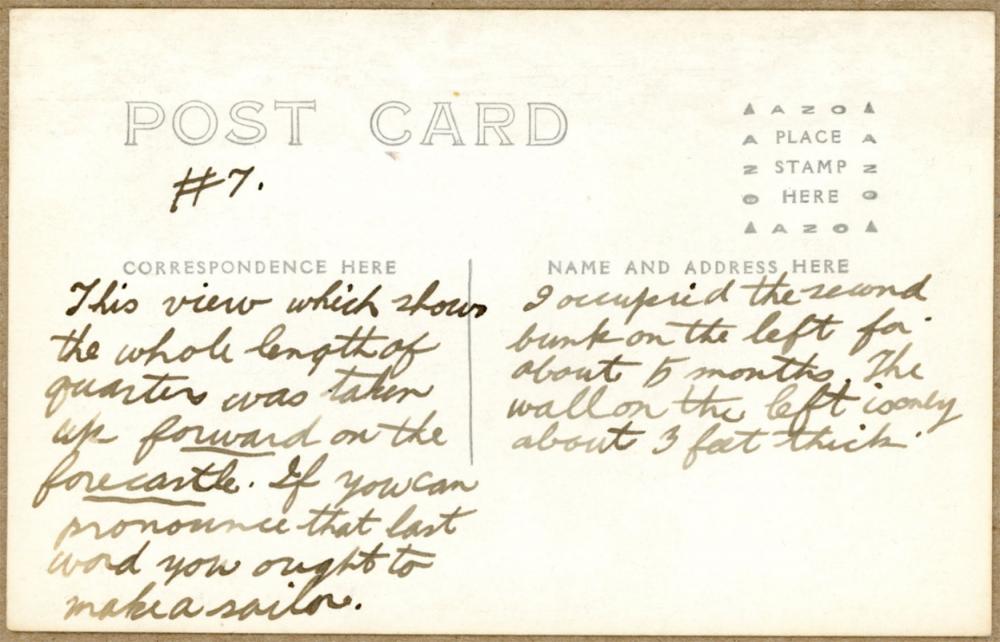 POST CARD
#7.
▲ A Z O ▲
A PLACE A
Z STAMP Z
O HERE O
▲ A Z O ▲
CORRESPONDENCE HERE
This view which shows
the whole length of
quarters was taken
up forward on the
forecastle. If you can
pronounce that last
word you ought to
make a sailor.
NAME AND ADDRESS HERE
I occupied the second
bunk on the left for
about 5 months. The
wall on the left is only
about 3 feet thick.